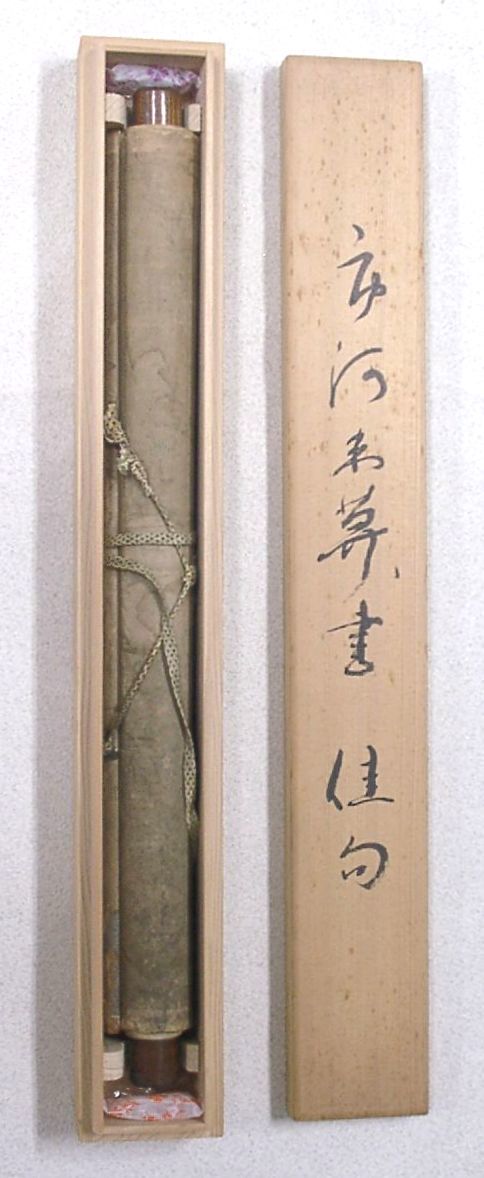 市河米葊書 佳句